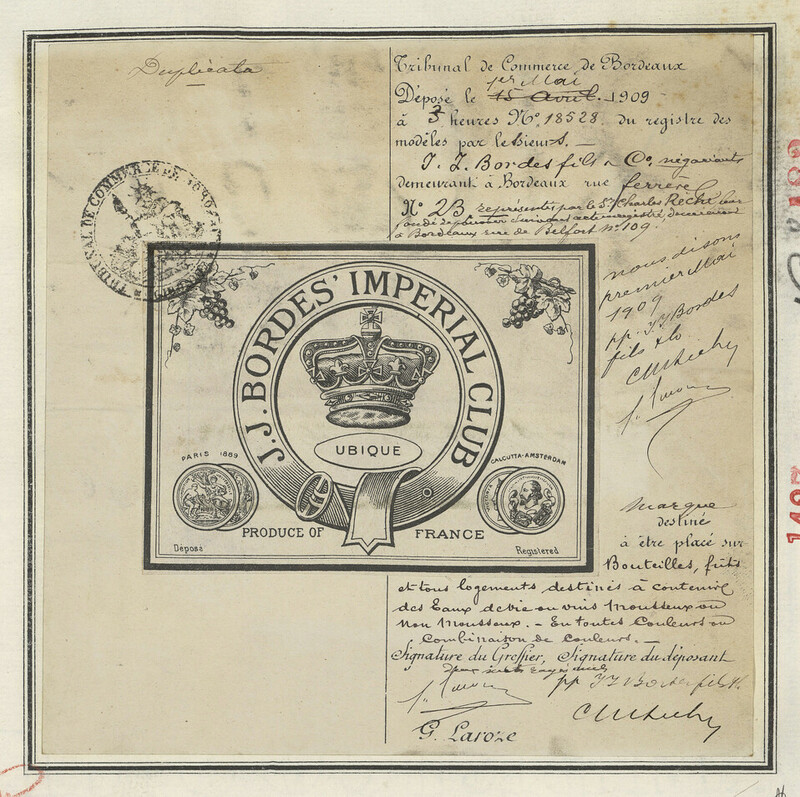 Duplicata
Tribunal de Commerce de Bordeaux
1er Mai
Déposé le 15 Avril 1909
à 3 heures No. 18528 du registre des
modèles par le Sieurs. —
J. J. Bordes fils & Co, négociants
demeurant à Bordeaux rue ferrère
No 23 représentés par le Sr Charles
à Bordeaux rue de Belfort no. 109.
TRIBUNAL DE COMMERCE DE BORDEAUX
nous disons
premier Mai
1909
pp. JJ Bordes
fils & Co
J.J. BORDES' IMPERIAL CLUB
UBIQUE
PARIS 1889
CALCUTTA-AMSTERDAM
PRODUCE OF FRANCE
Déposé
Registered
Marque
destiné
à être placé sur
Bouteilles, fûts
et tous logements destinés à contenir
des Eaux de vie ou vins Mousseux ou
non Mousseux. — En toutes Couleurs ou
Combinaison de Couleurs. —
Signature du Greffier, Signature du déposant
pp JJ Bordes fils &
G. Laroze